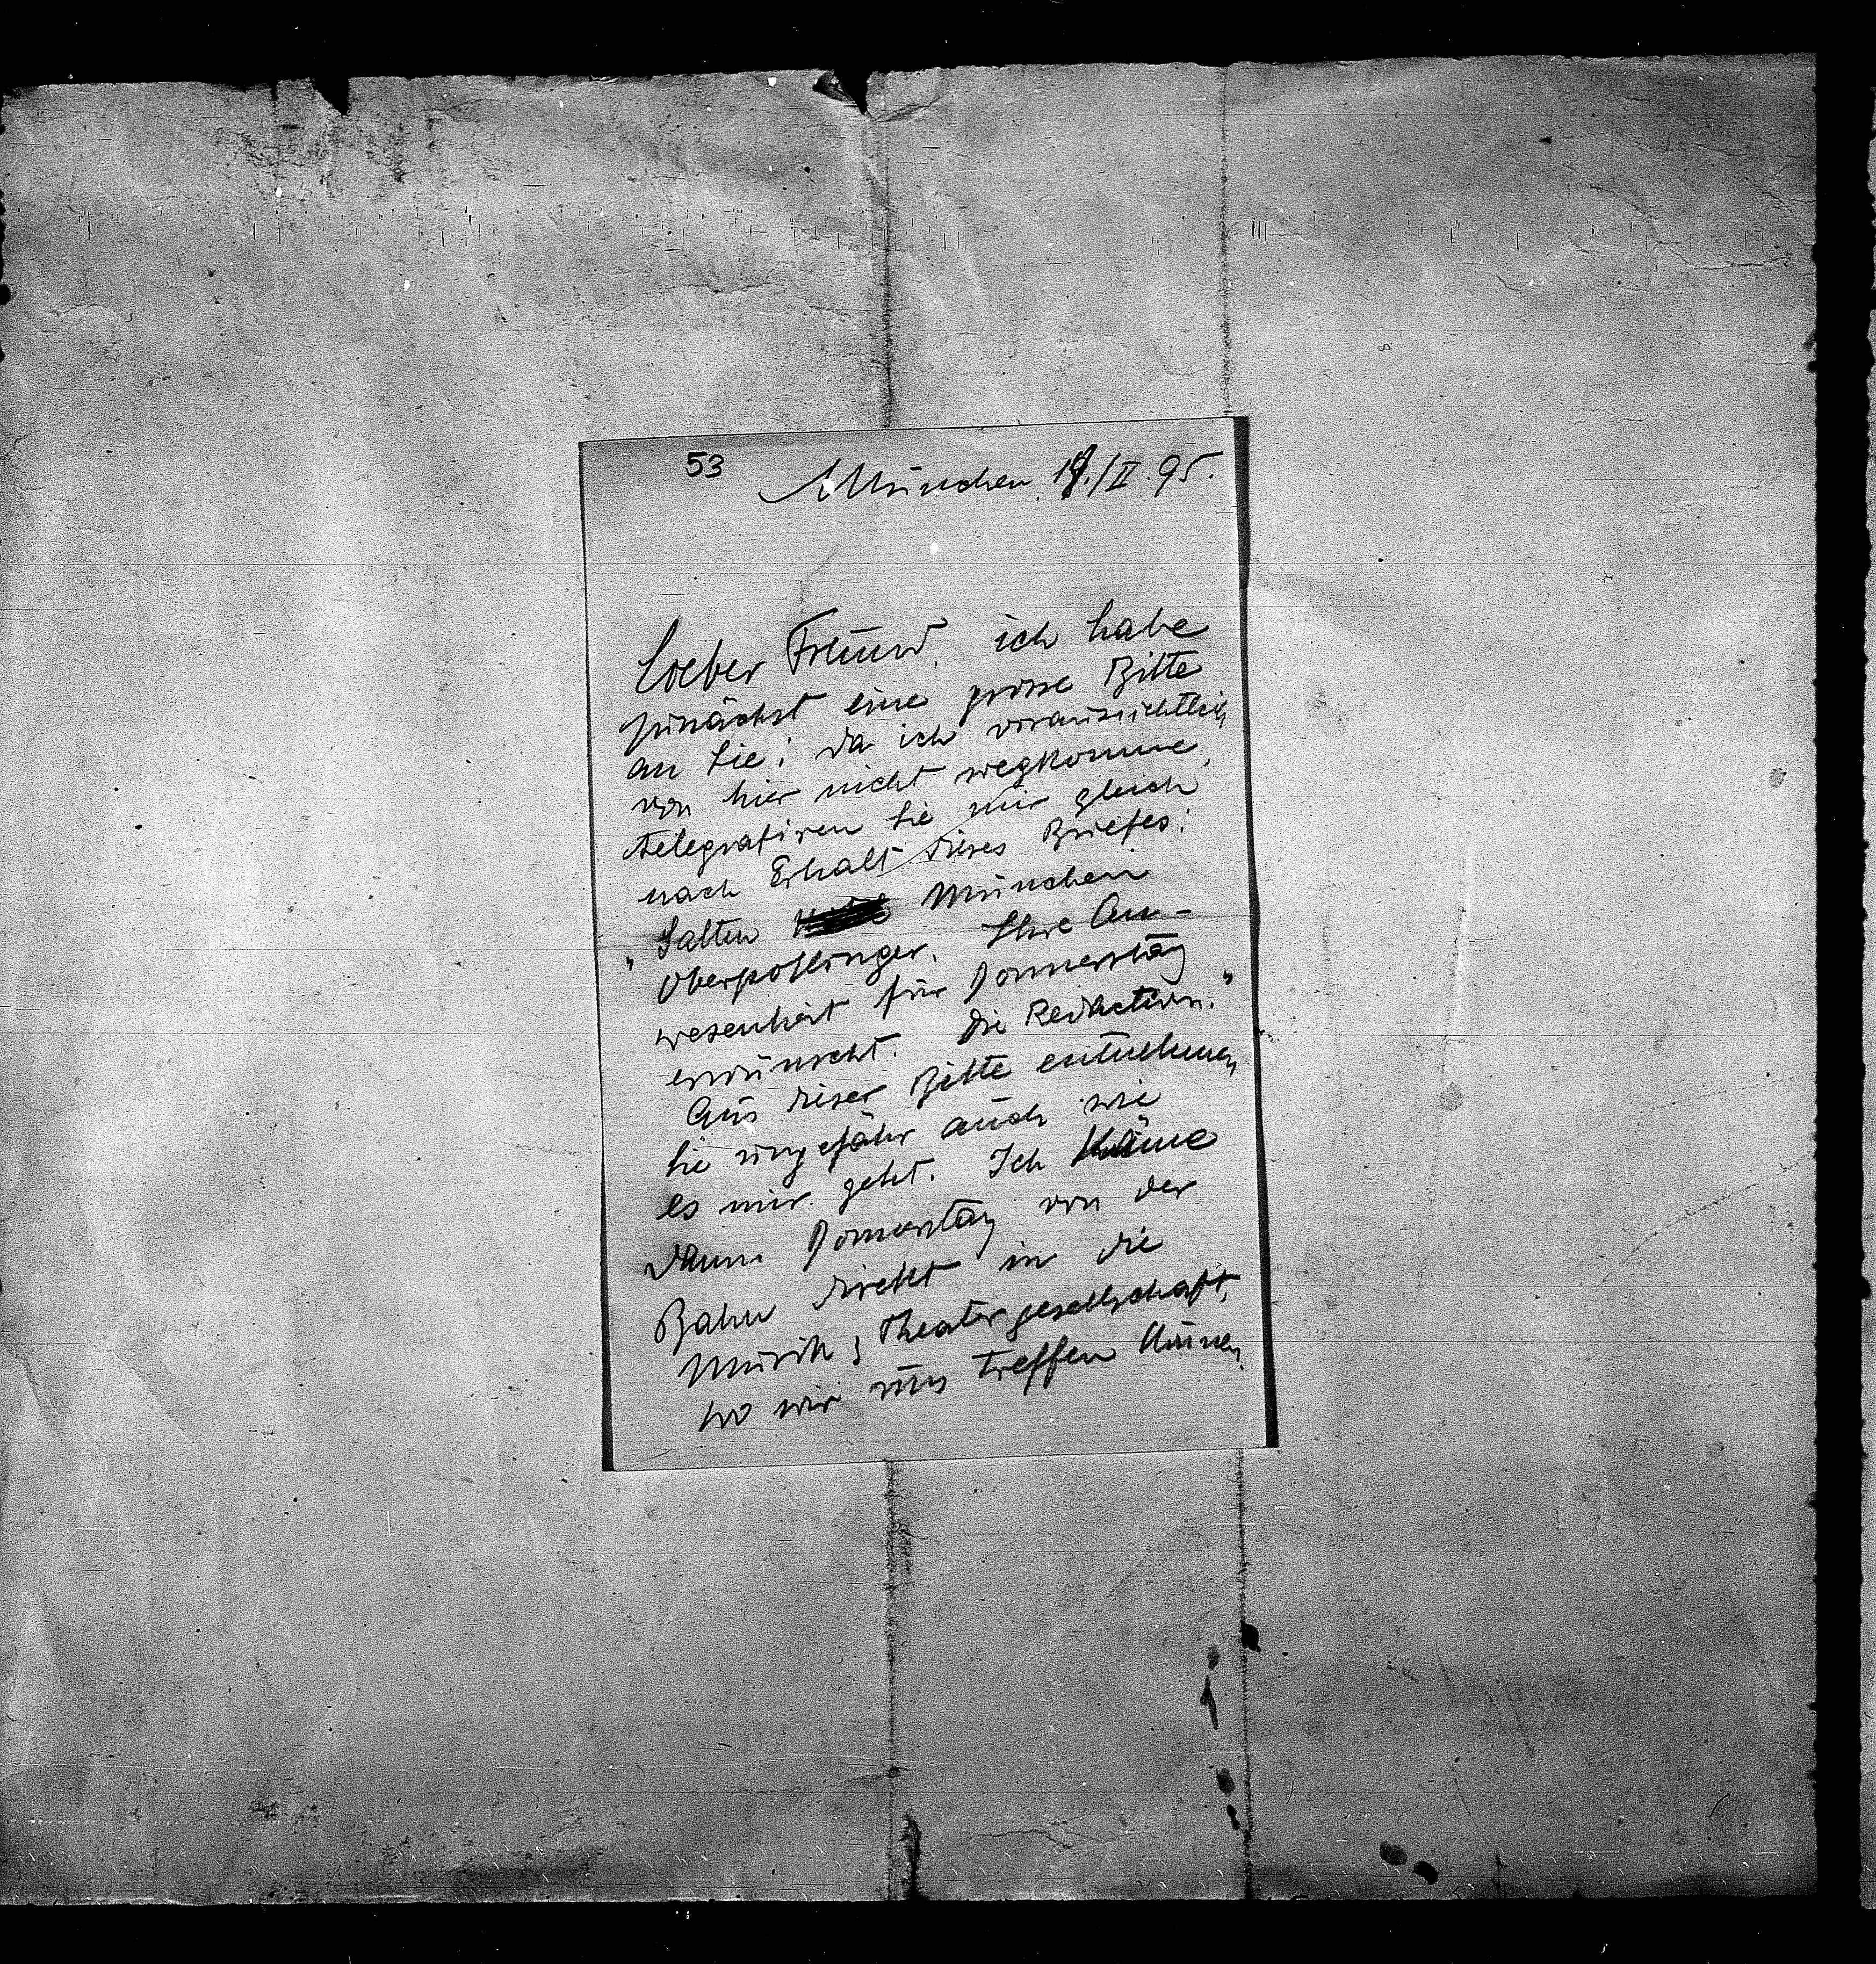 53
München. 19./II. 95.
Lieber Freund, ich habe
zunächst eine grosse Bitte
an Sie: da ich voraussichtlich
von hier nicht wegkomme,
telegrafiren Sie mir gleich
nach Erhalt dieses Briefes:
"Salten München
Oberpollinger. Ihre An-
wesenheit für Donnerstag
erwünscht. Die Redaction."
Aus dieser Bitte entnehmen
Sie ungefähr auch wie
es mir geht. Ich käme
dann Donnerstag von der
Bahn direkt in die
Musik & Theatergesellschaft,
wo wir uns treffen können.